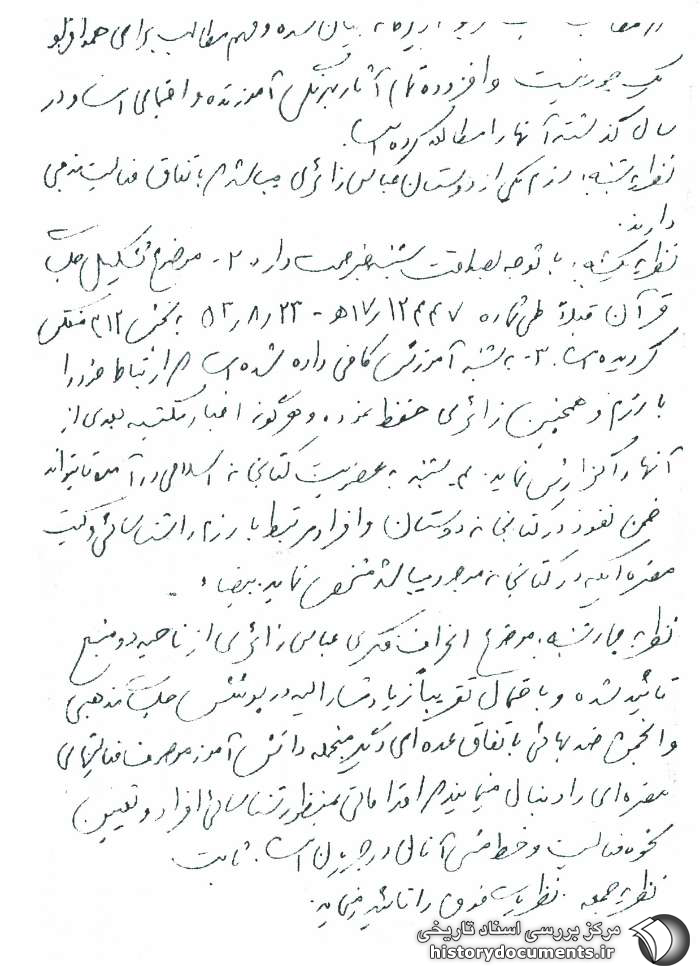 بیان شده و فهم مطالب برای همه افراد
یک جور نیست و افزوده تمام آثار برتکی آموزنده و اجتماعی است و در
سال گذشته آنها را مطالعه کرده است.
نظریه شنبه: رزم یکی از دوستان عباس زائری میباشد که باتفاق فعالیت مذهبی
دارند.
نظریه یکشنبه: با توجه بصداقت شنبه خبر صحت دارد. ۲- موضوع تشکیل جلسات
قرآن قبلاً طی شماره ۱۲۴۴۷/۱۷ھ - ۲۳/۸/۵۲ به بخش ۳۱۲ منعکس
گردیده است. ۳- به شنبه آموزش کافی داده شده است که ارتباط خود را
با رزم و همچنین زائری حفظ نموده و هرگونه اخبار مکتسبه بعدی از
آنها را گزارش نماید. ۴- شنبه به عضویت کتابخانه اسلامی درآمده تا بتواند
ضمن نفوذ در کتابخانه دوستان و افراد مرتبط با رزم را شناسائی و کتب
مضره‌ایکه در کتابخانه موجود میباشد مشخص نماید. بیضاء
نظریه چهارشنبه: موضوع انحراف فکری عباس زائری از ناحیه دو منبع
تائید شده و باحتمال تقریباً زیاد مشارالیه در پوشش جلسات مذهبی
و انجمن ضد بهائی باتفاق عده‌ای دیگر منجمله دانش آموز موصوف فعالیتهای
مضره‌ای را دنبال مینمایند که اقداماتی بمنظور شناسائی افراد و تعیین
نحوه فعالیت و خط مشی آنان در جریان است. ثابت
نظریه جمعه: نظریات فوق را تائید مینماید.
مرکز بررسی اسناد تاریخی
historydocuments.ir